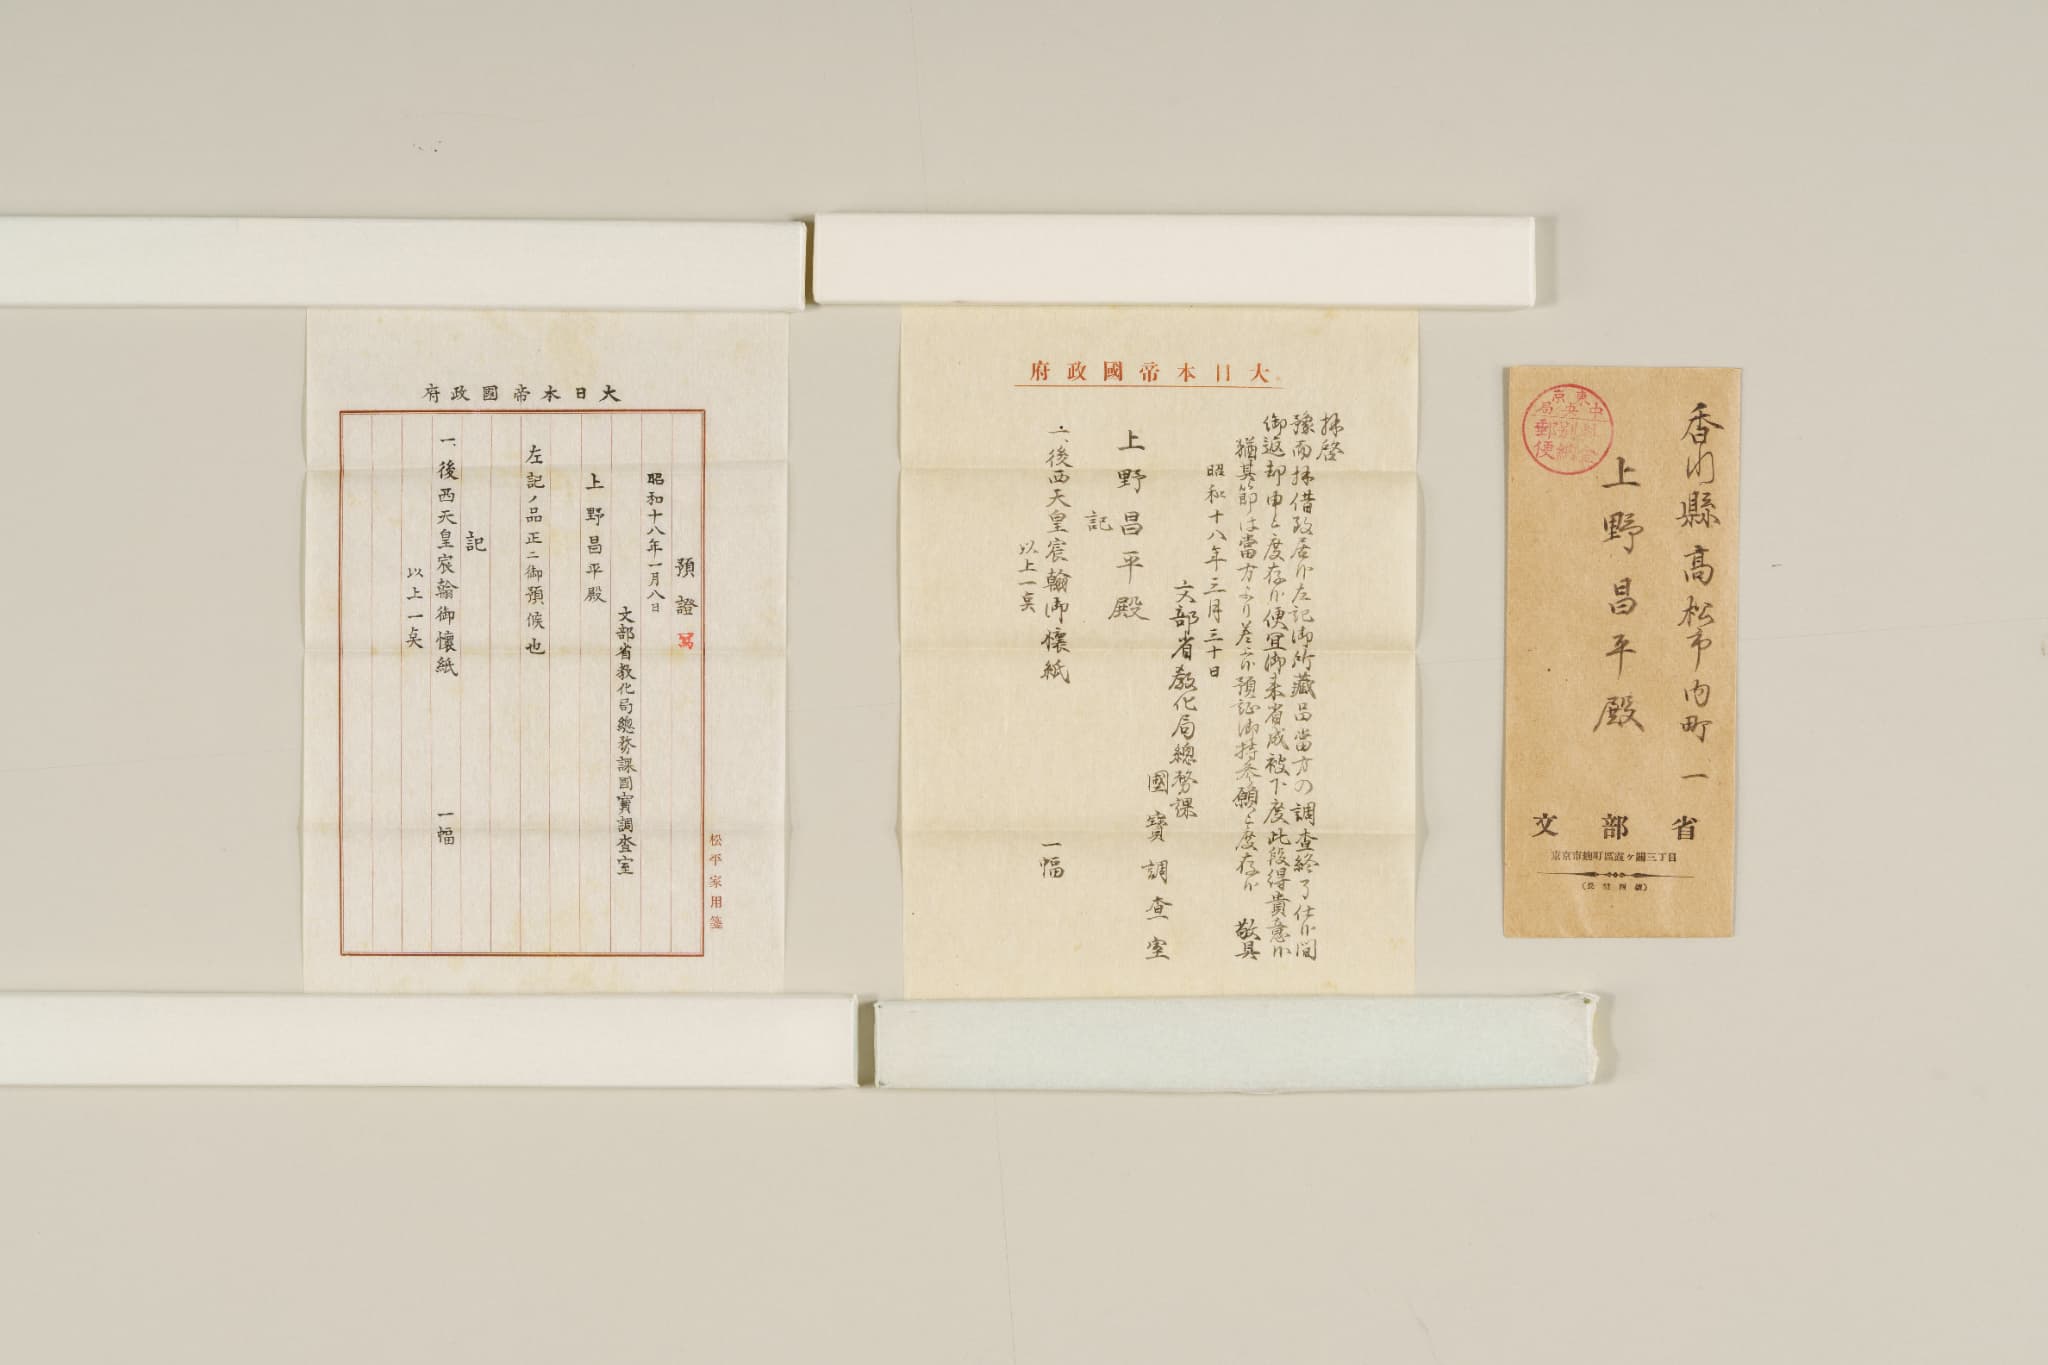 香川縣高松市内町一
上野昌平殿
東京
中央局
別納
郵便
文部省
東京市麹町區霞ヶ關三丁目
大日本帝國政府
拜啓
豫而拜借致居候左記御所藏品當方の調査終了仕候間
御返却申上度存候便宜御来省成被下度此段得貴意候
猶其節は當方より差上候預証御持参願上度存候 敬具
昭和十八年三月三十日
文部省教化局總務課
國寳調査室
上野昌平殿
記
一、後西天皇宸翰御懷紙 一幅
以上一点
大日本帝國政府
預證 写
昭和十八年一月八日
文部省教化局總務課國寳調査室
上野昌平殿
左記ノ品正ニ御預候也
記
一、後西天皇宸翰御懷紙 一幅
以上一点
松平家用箋